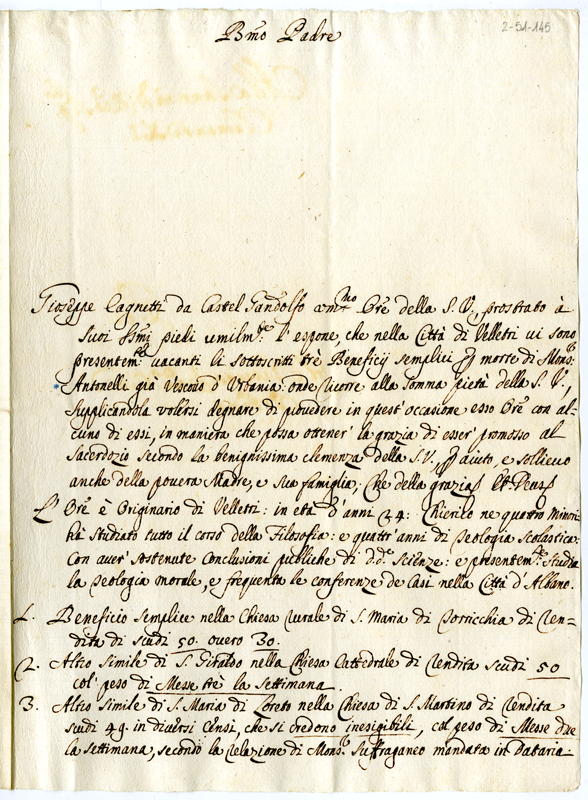 2-51-145
Bmo Padre
Gioseppe Cagnetti da Castel Gandolfo um.mo Ore della S. V., prostrato à
suoi ssmi piedi umilm.te l'espone, che nella Città di Velletri vi sono
presentem.te vacanti li sottoscritti tre Beneficij semplici p morte di Mons.r
Antonelli già Vescovo d'Urbania: onde ricorre alla somma pietà della S. V.,
supplicandola volersi degnare di provedere in quest'occasione esso Ore con al=
cuno di essi, in maniera che possa ottener' la grazia di esser' promosso al
Sacerdozio secondo la benignissima clemenza della S. V. p aiuto, e sollievo
anche della povera Madre, e sua famiglia; che della grazia
L'Ore è Originario di Velletri: in età d'anni 24: Chierico ne quattro Minori
hà studiato tutto il corso della Filosofia: e quattr'anni di Teologia scolastica:
Con aver' sostenute Conclusioni publiche di d.de Scienze: e presentem.te studia
la Teologia morale, e frequenta le conferenze de Casi nella Città d'Albano.
1. Beneficio semplice nella Chiesa rurale di S. Maria di Sorricchia di ren=
dita di scudi 50. overo 30.
2. Altro simile di S. Giraldo nella Chiesa Cattedrale di rendita scudi 50
col' peso di Messe trè la settimana.
3. Altro simile di S. Maria di Loreto nella Chiesa di S. Martino di rendita
scudi 49. in diversi Censi, che si credono inesigibili, col peso di Messe due
la settimana, secondo la relazione di Mons.r Suffraganeo mandata in Dataria.